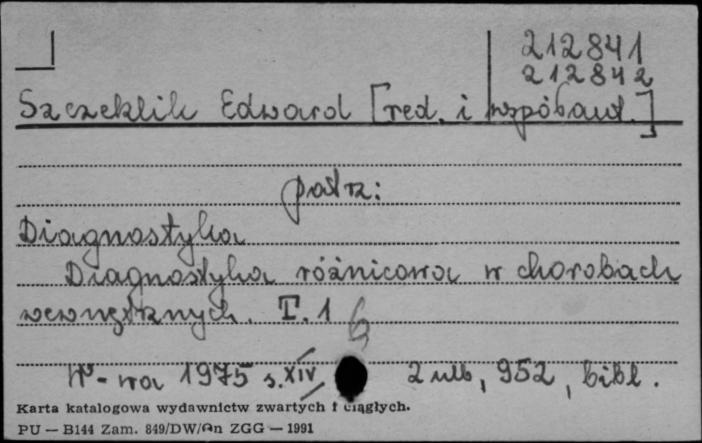 212841
212842
Szczeklik Edward [red. i współaut.]
patrz:
Diagnostyka
Diagnostyka różnicowa w chorobach
wewnętrznych. T. 1
W-wa 1975 s. XIV 2 nlb, 952, bibl.
Karta katalogowa wydawnictw zwartych i ciągłych.
PU — B144 Zam. 849/DW/An ZGG — 1991